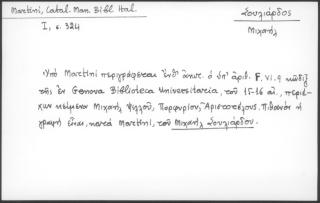 Martini, Catal. Man. Bibl Ital.
Σουλιάρδος
I, σ. 324
Μιχαήλ
Ὑπό Martini περιγράφεται ἐνθ' ἀνωτ. ὁ ὑπ' ἀριθ. F. VI. 9 κῶδιξ
τῆς ἐν Genova Biblioteca Universitaria, τοῦ 15-16 αἰ., περιέ-
χων κείμενα Μιχαήλ Ψελλοῦ, Πορφυρίου, Ἀριστοτέλους. Πιθανόν ἡ
γραφή εἶναι, κατά Martini, τοῦ Μιχαήλ Σουλιάρδου.